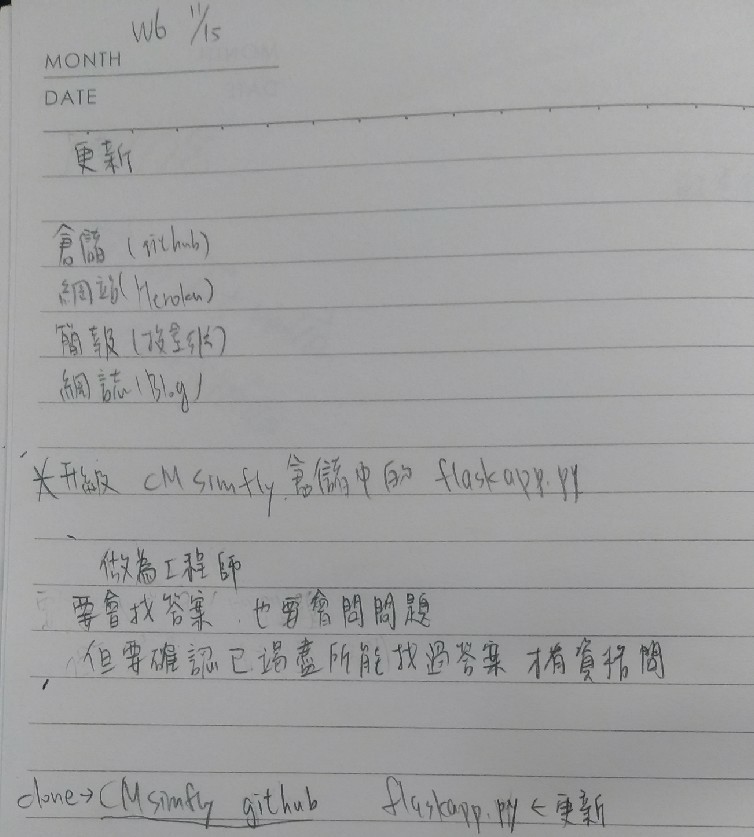 W6 11/15
MONTH
DATE
更新
倉儲 (github)
網站 (Heroku)
簡報 (投影片)
網誌 (Blog)
*升級 CMsimfly 倉儲中的 flaskapp.py
做為工程師
要會找答案、也要會問問題
但要確認已竭盡所能找過答案 才有資格問
clone→CMsimfly github flaskapp.py ← 更新